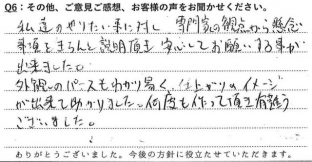 Q6：その他、ご意見ご感想、お客様の声をお聞かせください。
私達のやりたい事に対し 専門家の観点から懸念
事項をきちんと説明頂き 安心してお願いする事が
出来ました。
外観のパースもわかり易く、仕上がりのイメージ
が出来て助かりました。何度も作って頂き有難う
ございました。
ありがとうございました。今後の方針に役立たせていただきます。